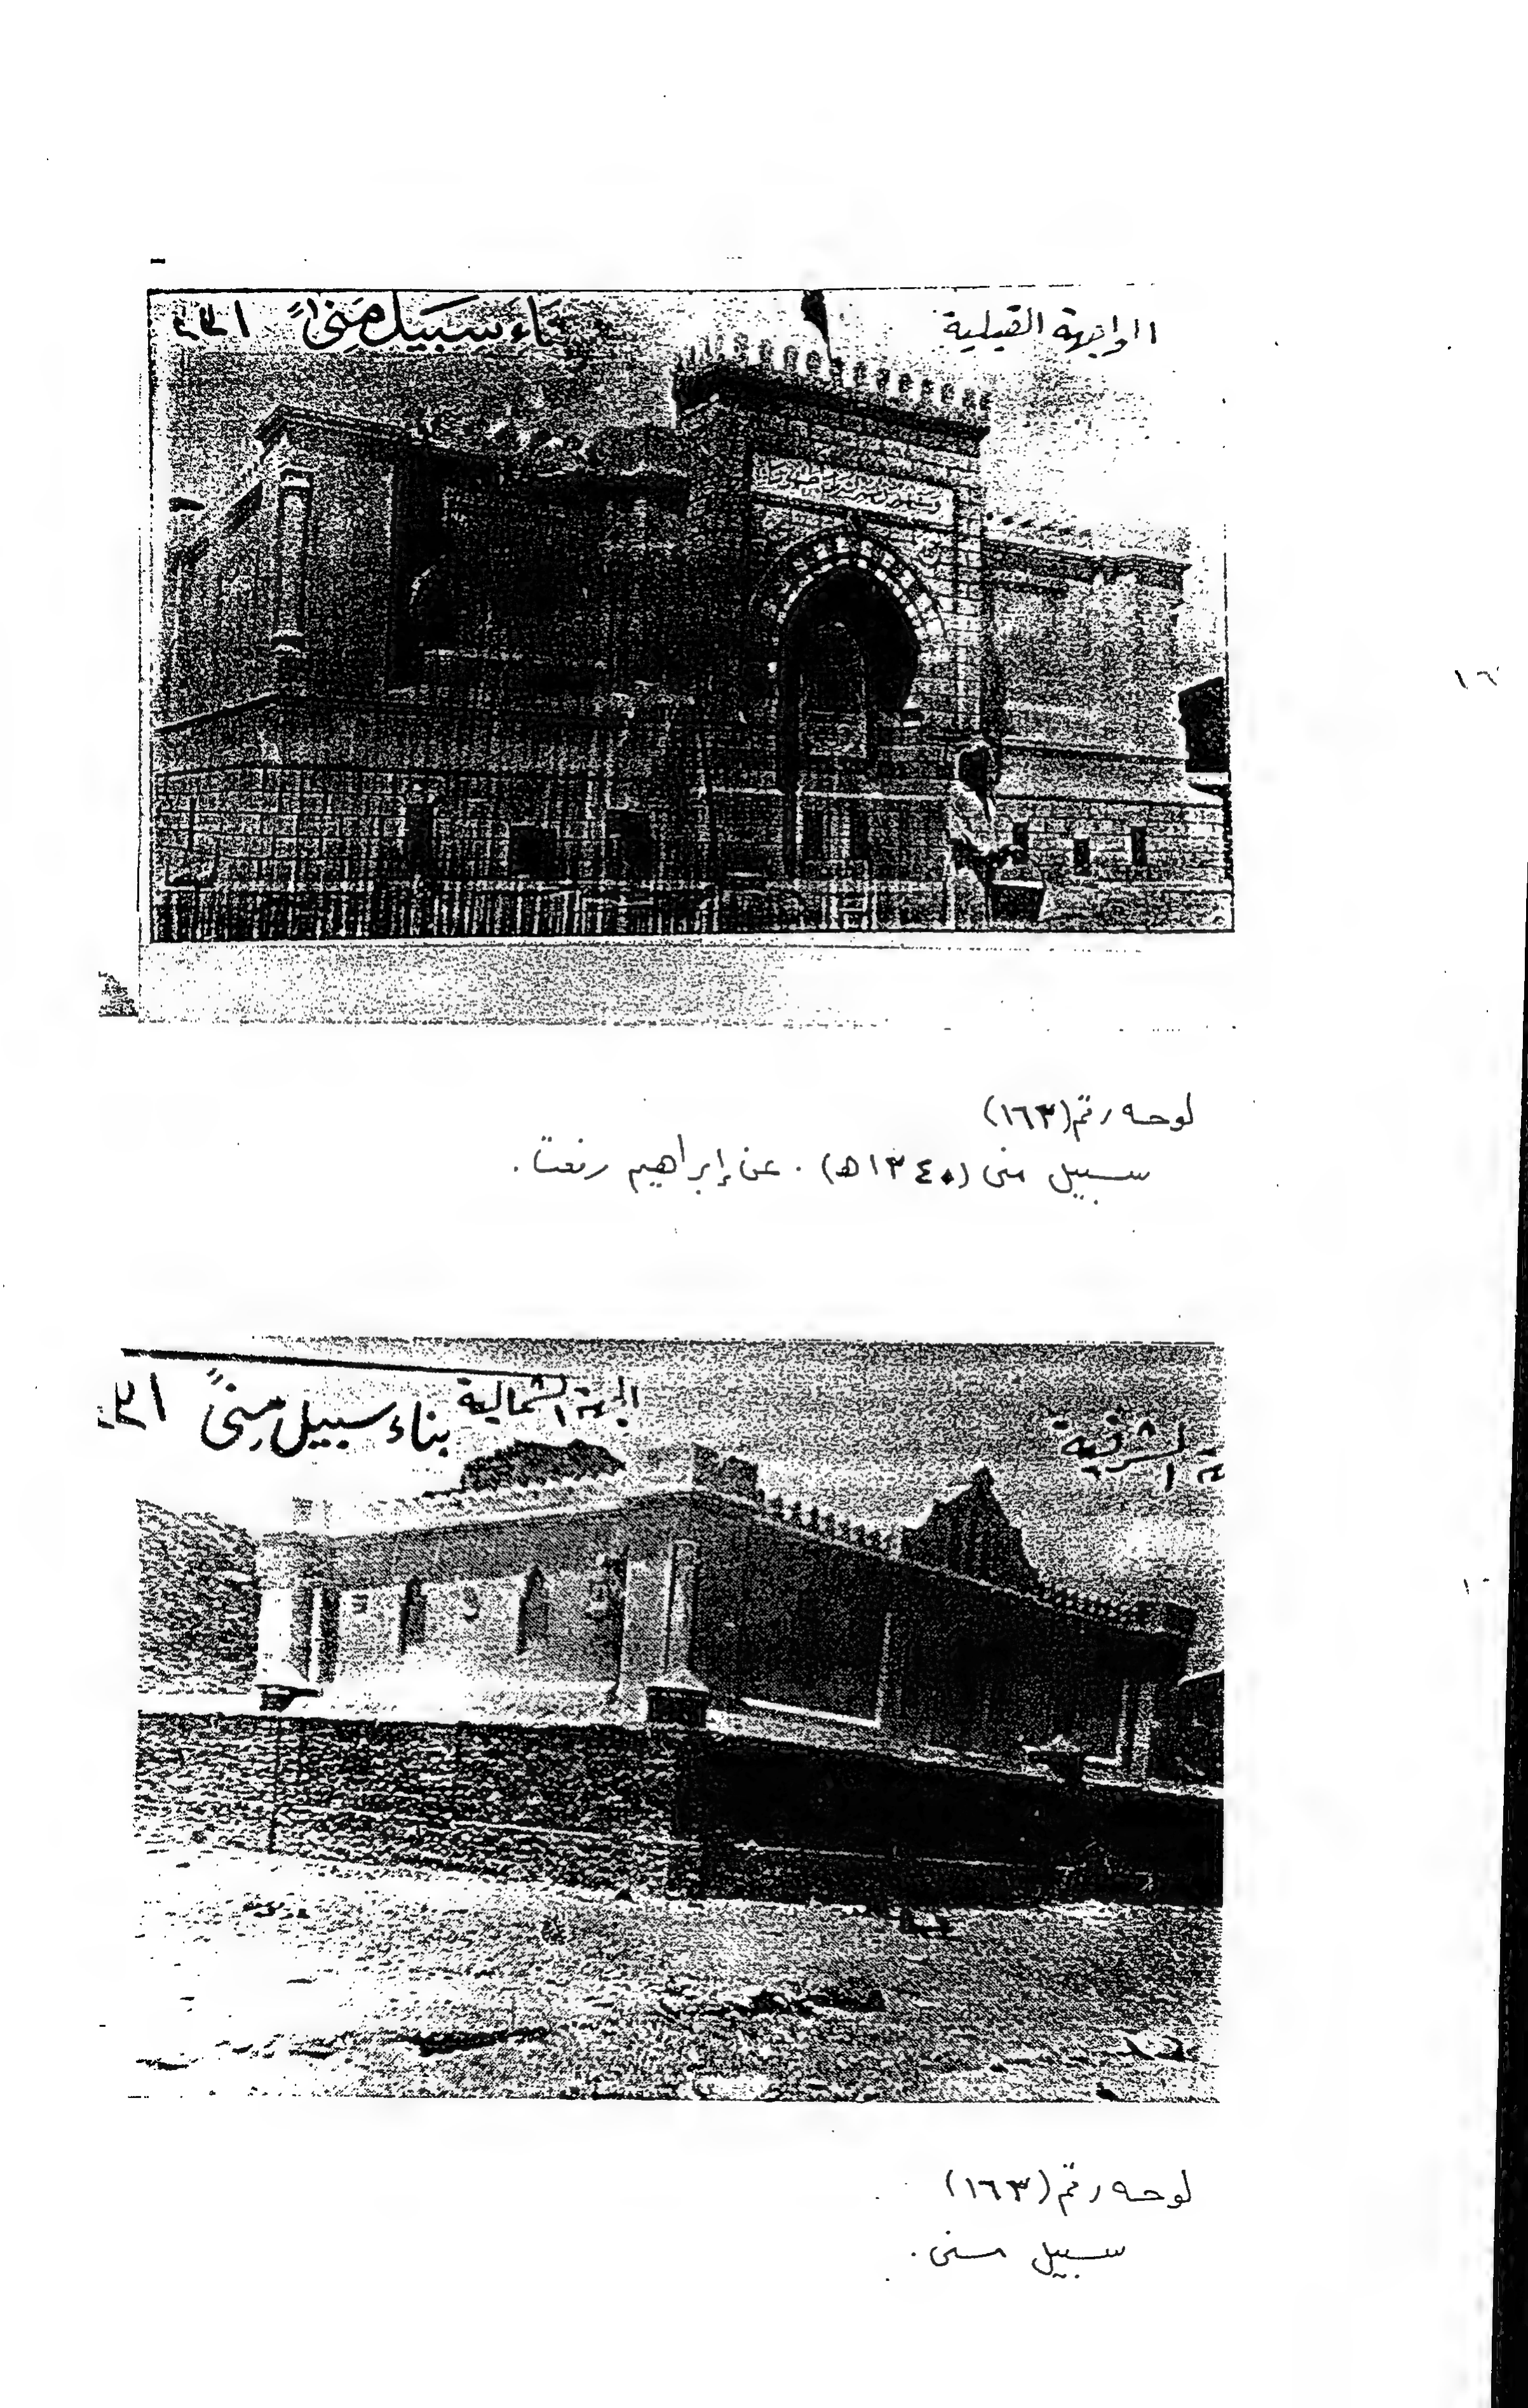 الواجهة القبلية
بناء سبيل منىً
لوحه رقم (١٦٣)
سبيل منى (١٣٤٠ه) . عن إبراهيم رفعت .
الجهة الشمالية
الشرقية
بناء سبيل منىً
لوحه رقم (١٦٣)
سبيل منى .